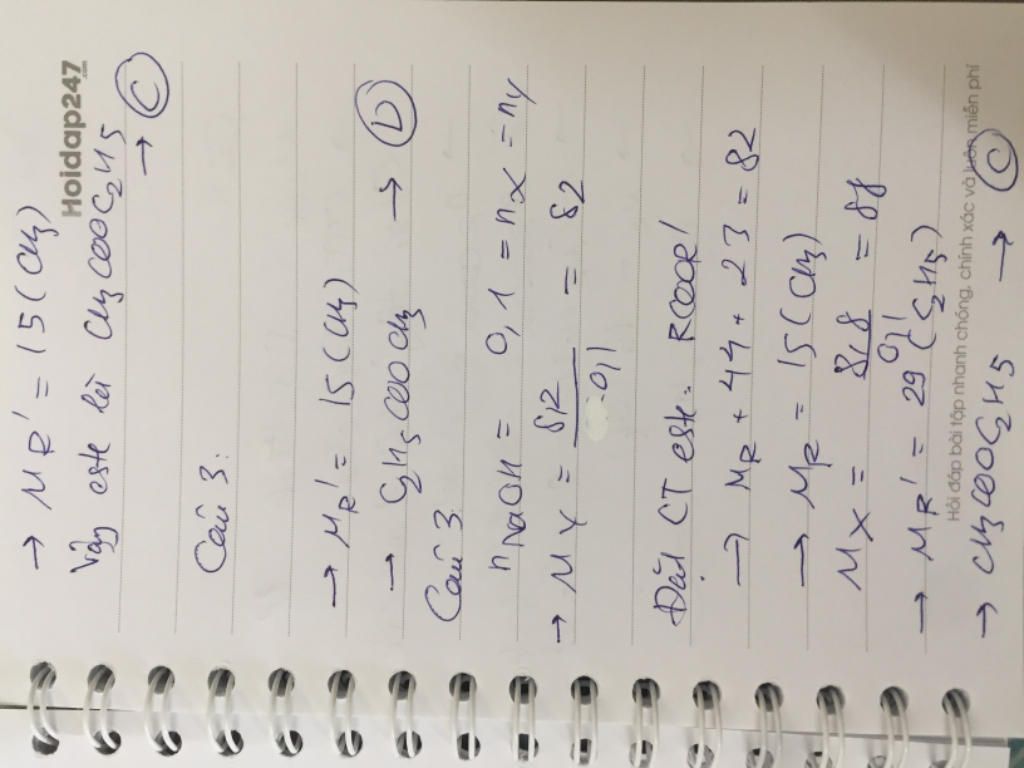 → MR' = 15 (CH3)
Hoidap247
.com
Vậy este là CH3COOC2H5
→ C
Câu 3:
→ MR' = 15 (CH3)
→ C2H5COOCH3 → D
Câu 3:
nNaOH = 0,1 = nX = nY
→ MY = 8,2 / 0,1 = 82
Đặt CT este: RCOOR'
→ MR + 44 + 23 = 82
→ MR = 15 (CH3)
MX = 8,8 / 0,1 = 88
→ MR' = 29 (C2H5)
→ CH3COOC2H5 → C
Hỏi đáp bài tập nhanh chóng, chính xác và luôn miễn phí